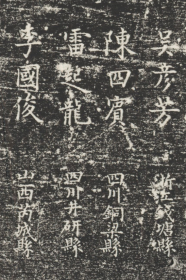 吳彦芳 浙江錢塘縣
陳四賓 四川銅梁縣
雷起龍 四川井研縣
李國俊 山西芮城縣